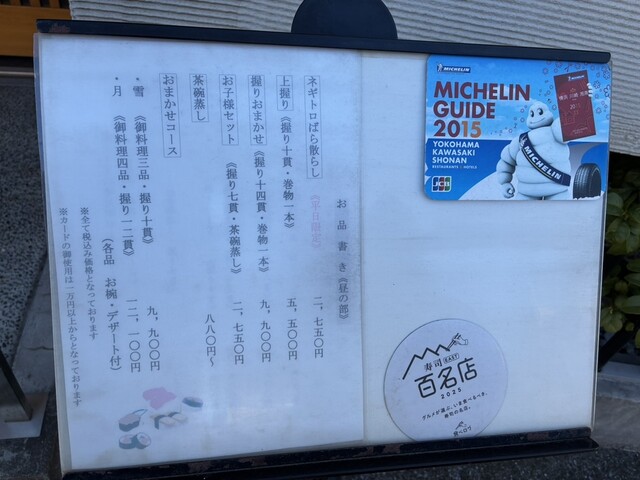 お品書き《昼の部》
ネギトロばら散らし 《平日限定》 二、七五〇円
上握り《握り十貫・巻物一本》 五、五〇〇円
握りおまかせ《握り十四貫・巻物一本》 九、九〇〇円
お子様セット《握り七貫・茶碗蒸し》 二、七五〇円
茶碗蒸し 八八〇円〜
おまかせコース
・雪《御料理三品・握り十貫》 九、九〇〇円
・月《御料理四品・握り一二貫》 一二、一〇〇円
(各品 お椀・デザート付)
※全て税込み価格となっております
※カードの御使用は一万円以上からとなっております
MICHELIN
MICHELIN
GUIDE
2015
YOKOHAMA
KAWASAKI
SHONAN
RESTAURANTS & HOTELS
MICHELIN
JCB
寿司 EAST
百名店
2025
グルメが選ぶ、いま食べるべき、
俺たちの名店。
食べログ